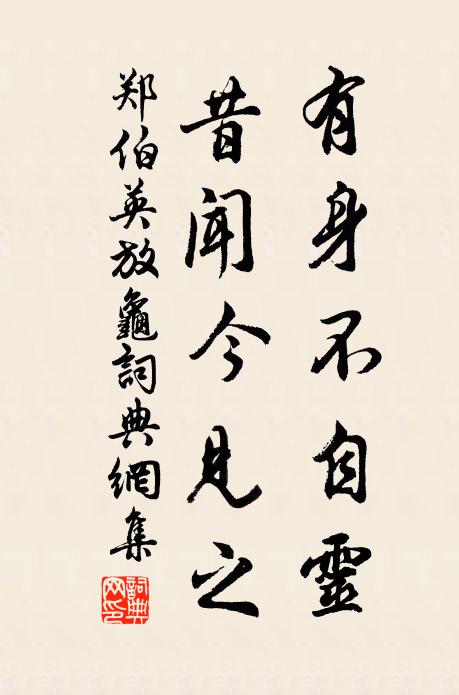 有身不自靈
昔闻今見之
郑伯英放龜詞典網集
詞典網印